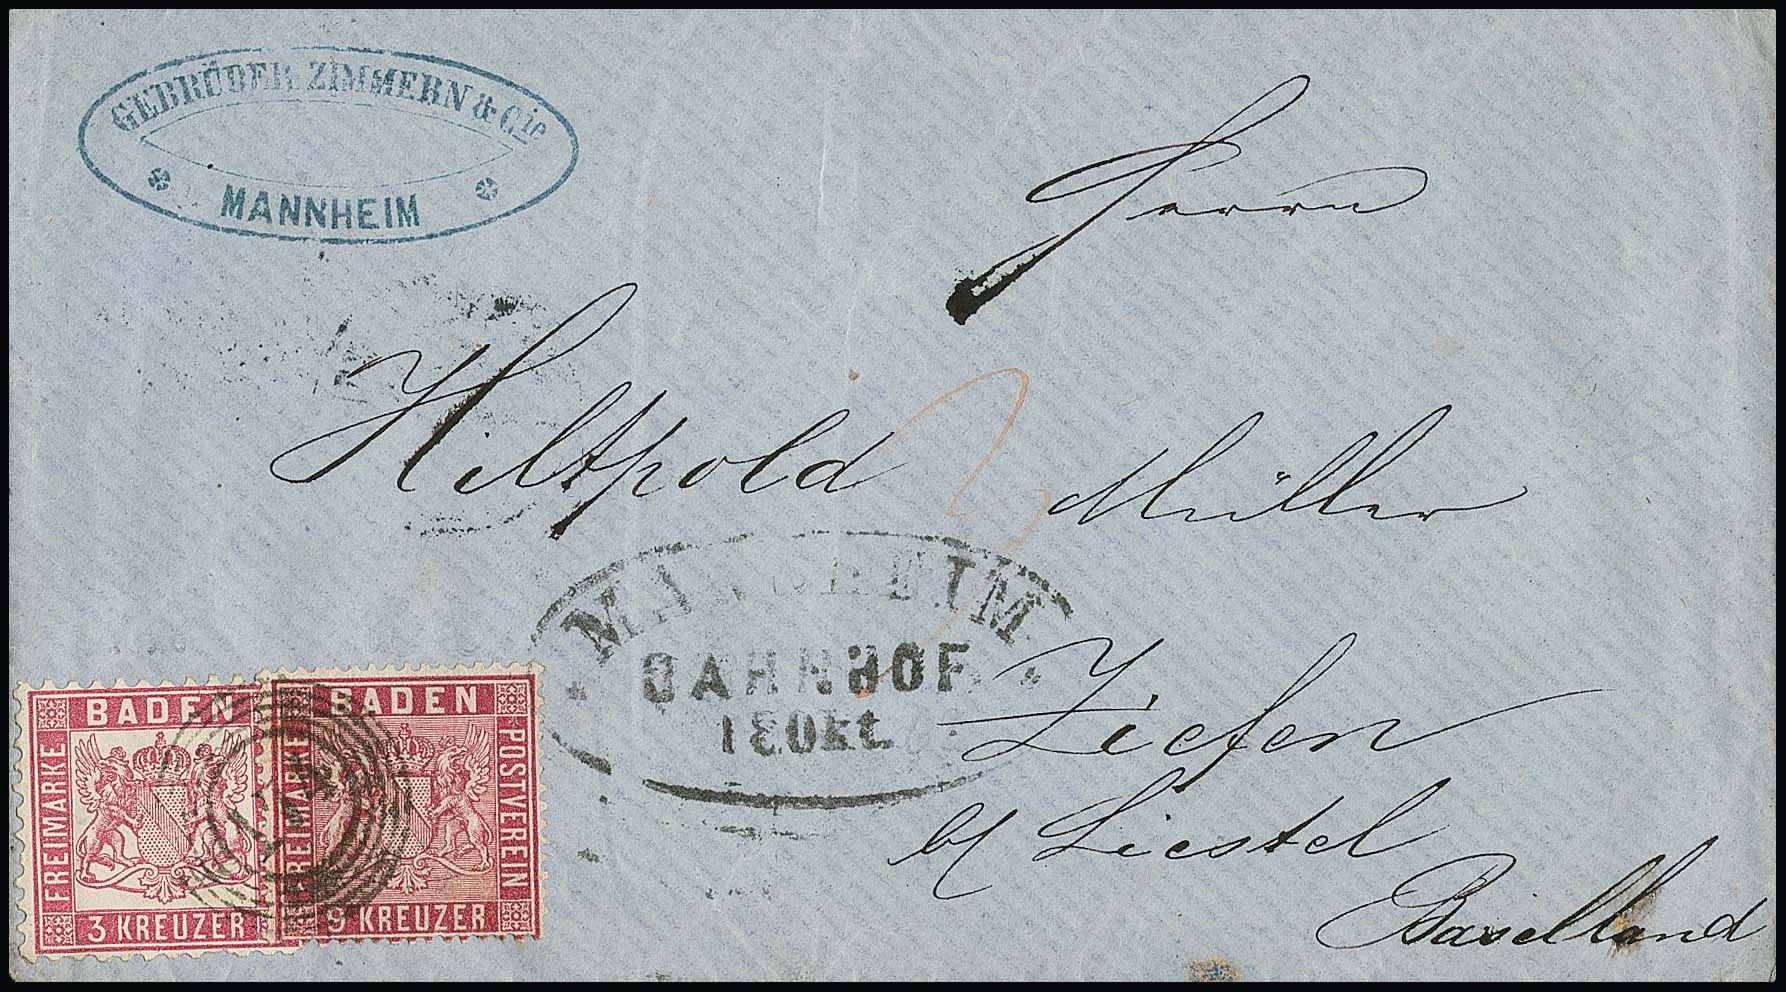 GEBRÜDER ZIMMERN & Cie
MANNHEIM
Herrn
Hiltpold Müller
MANNHEIM
BAHNHOF
Ziefen
b/ Liestal
Baselland
BADEN
FREIMARKE
3 KREUZER
BADEN
FREIMARKE
POSTVEREIN
9 KREUZER